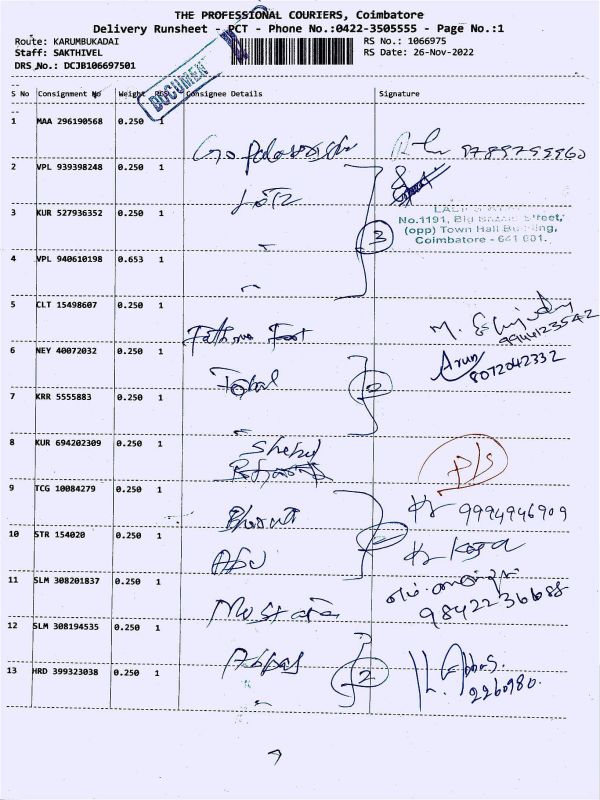 THE PROFESSIONAL COURIERS, Coimbatore
Delivery Runsheet - PCT - Phone No.:0422-3505555 - Page No.:1
Route: KARUMBUKADAI RS No.: 1066975
Staff: SAKTHIVEL RS Date: 26-Nov-2022
DRS No.: DCJB106697501
DOCUMEN
S No Consignment No Weight Consignee Details Signature
1 MAA 296190568 0.250 1
2 VPL 939398248 0.250 1
3 KUR 527936352 0.250 1
No.1191, Big Street,
(opp) Town Hall
Coimbatore - 641 001.
3
4 VPL 940610198 0.653 1
5 CLT 15498607 0.250 1 M.
9944123542
6 NEY 40072032 0.250 1 Iqbal 2 Arun
8072042332
7 KRR 5555883 0.250 1
8 KUR 694202309 0.250 1
9 TCG 10084279 0.250 1 9994946909
10 STR 154020 0.250 1 Abu
11 SLM 308201837 0.250 1 Mustafa
98422 36688
12 SLM 308194535 0.250 1 Abbas
13 HRD 399323038 0.250 1 2 2260980.